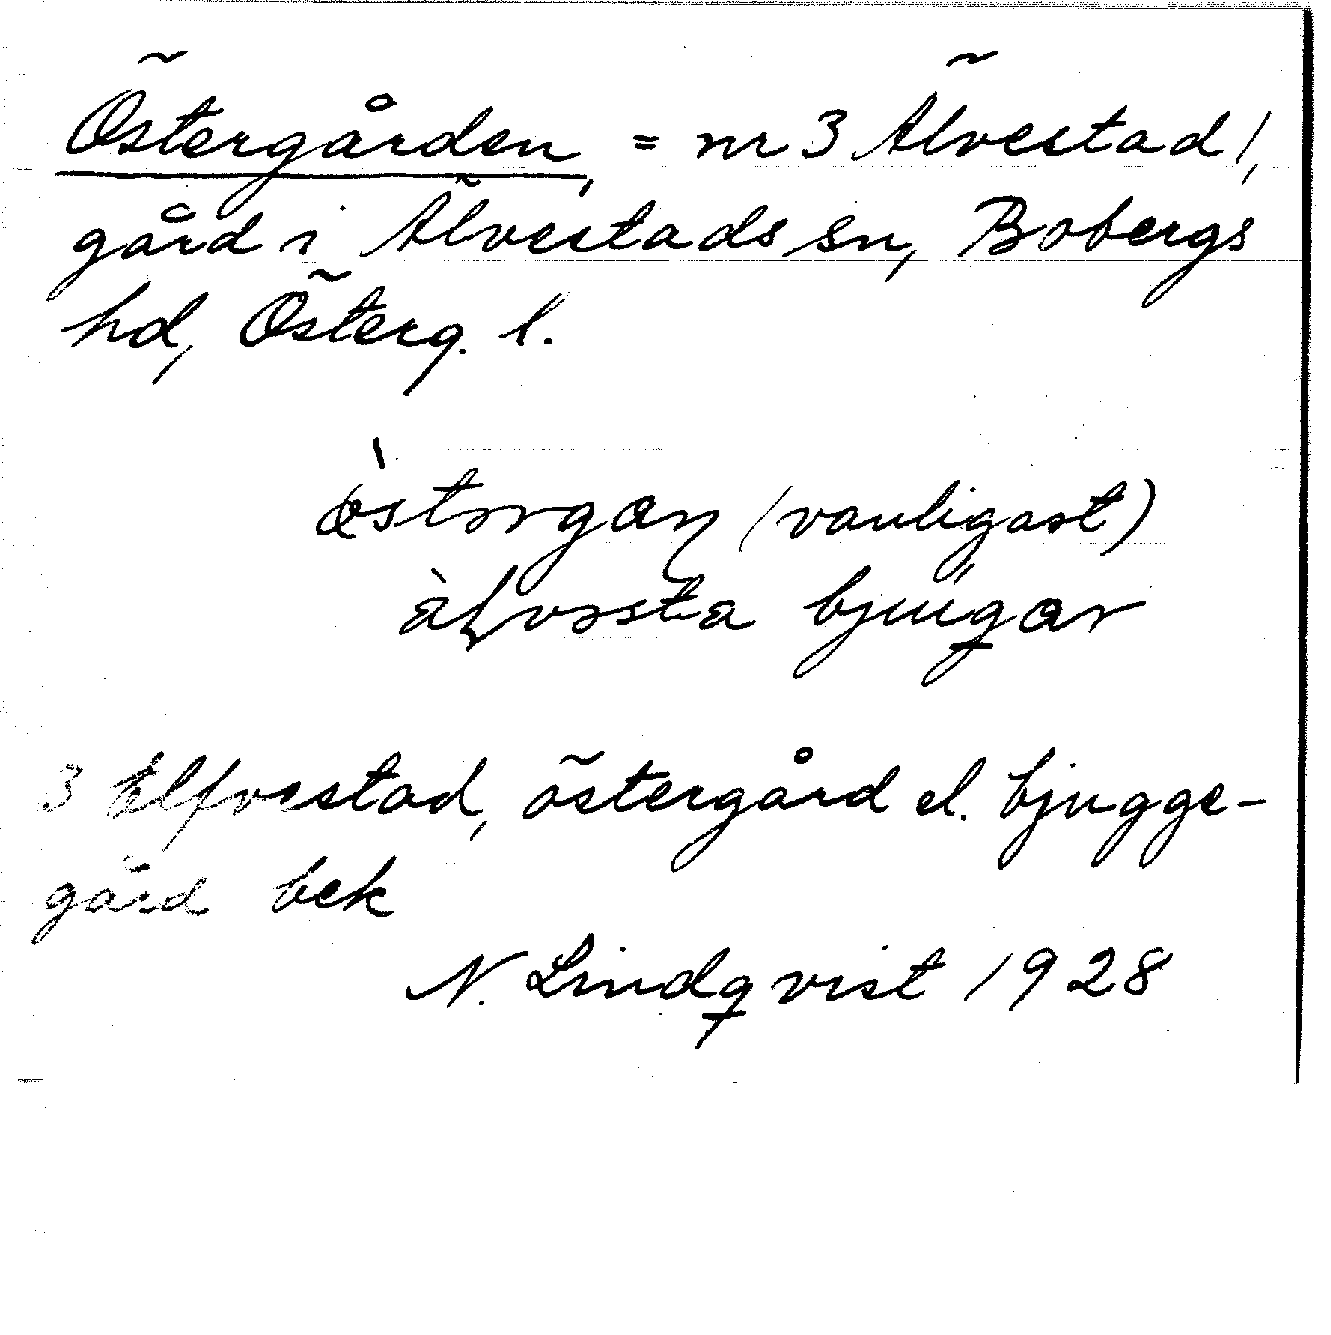 Östergården, = nr 3 Älvestad /,
gård i Älvestads sn, Bobergs
hd, Österg. l.
(vanligast)
3 Elfvestad, östergård el. bjugge-
gård bek
N. Lindqvist 1928